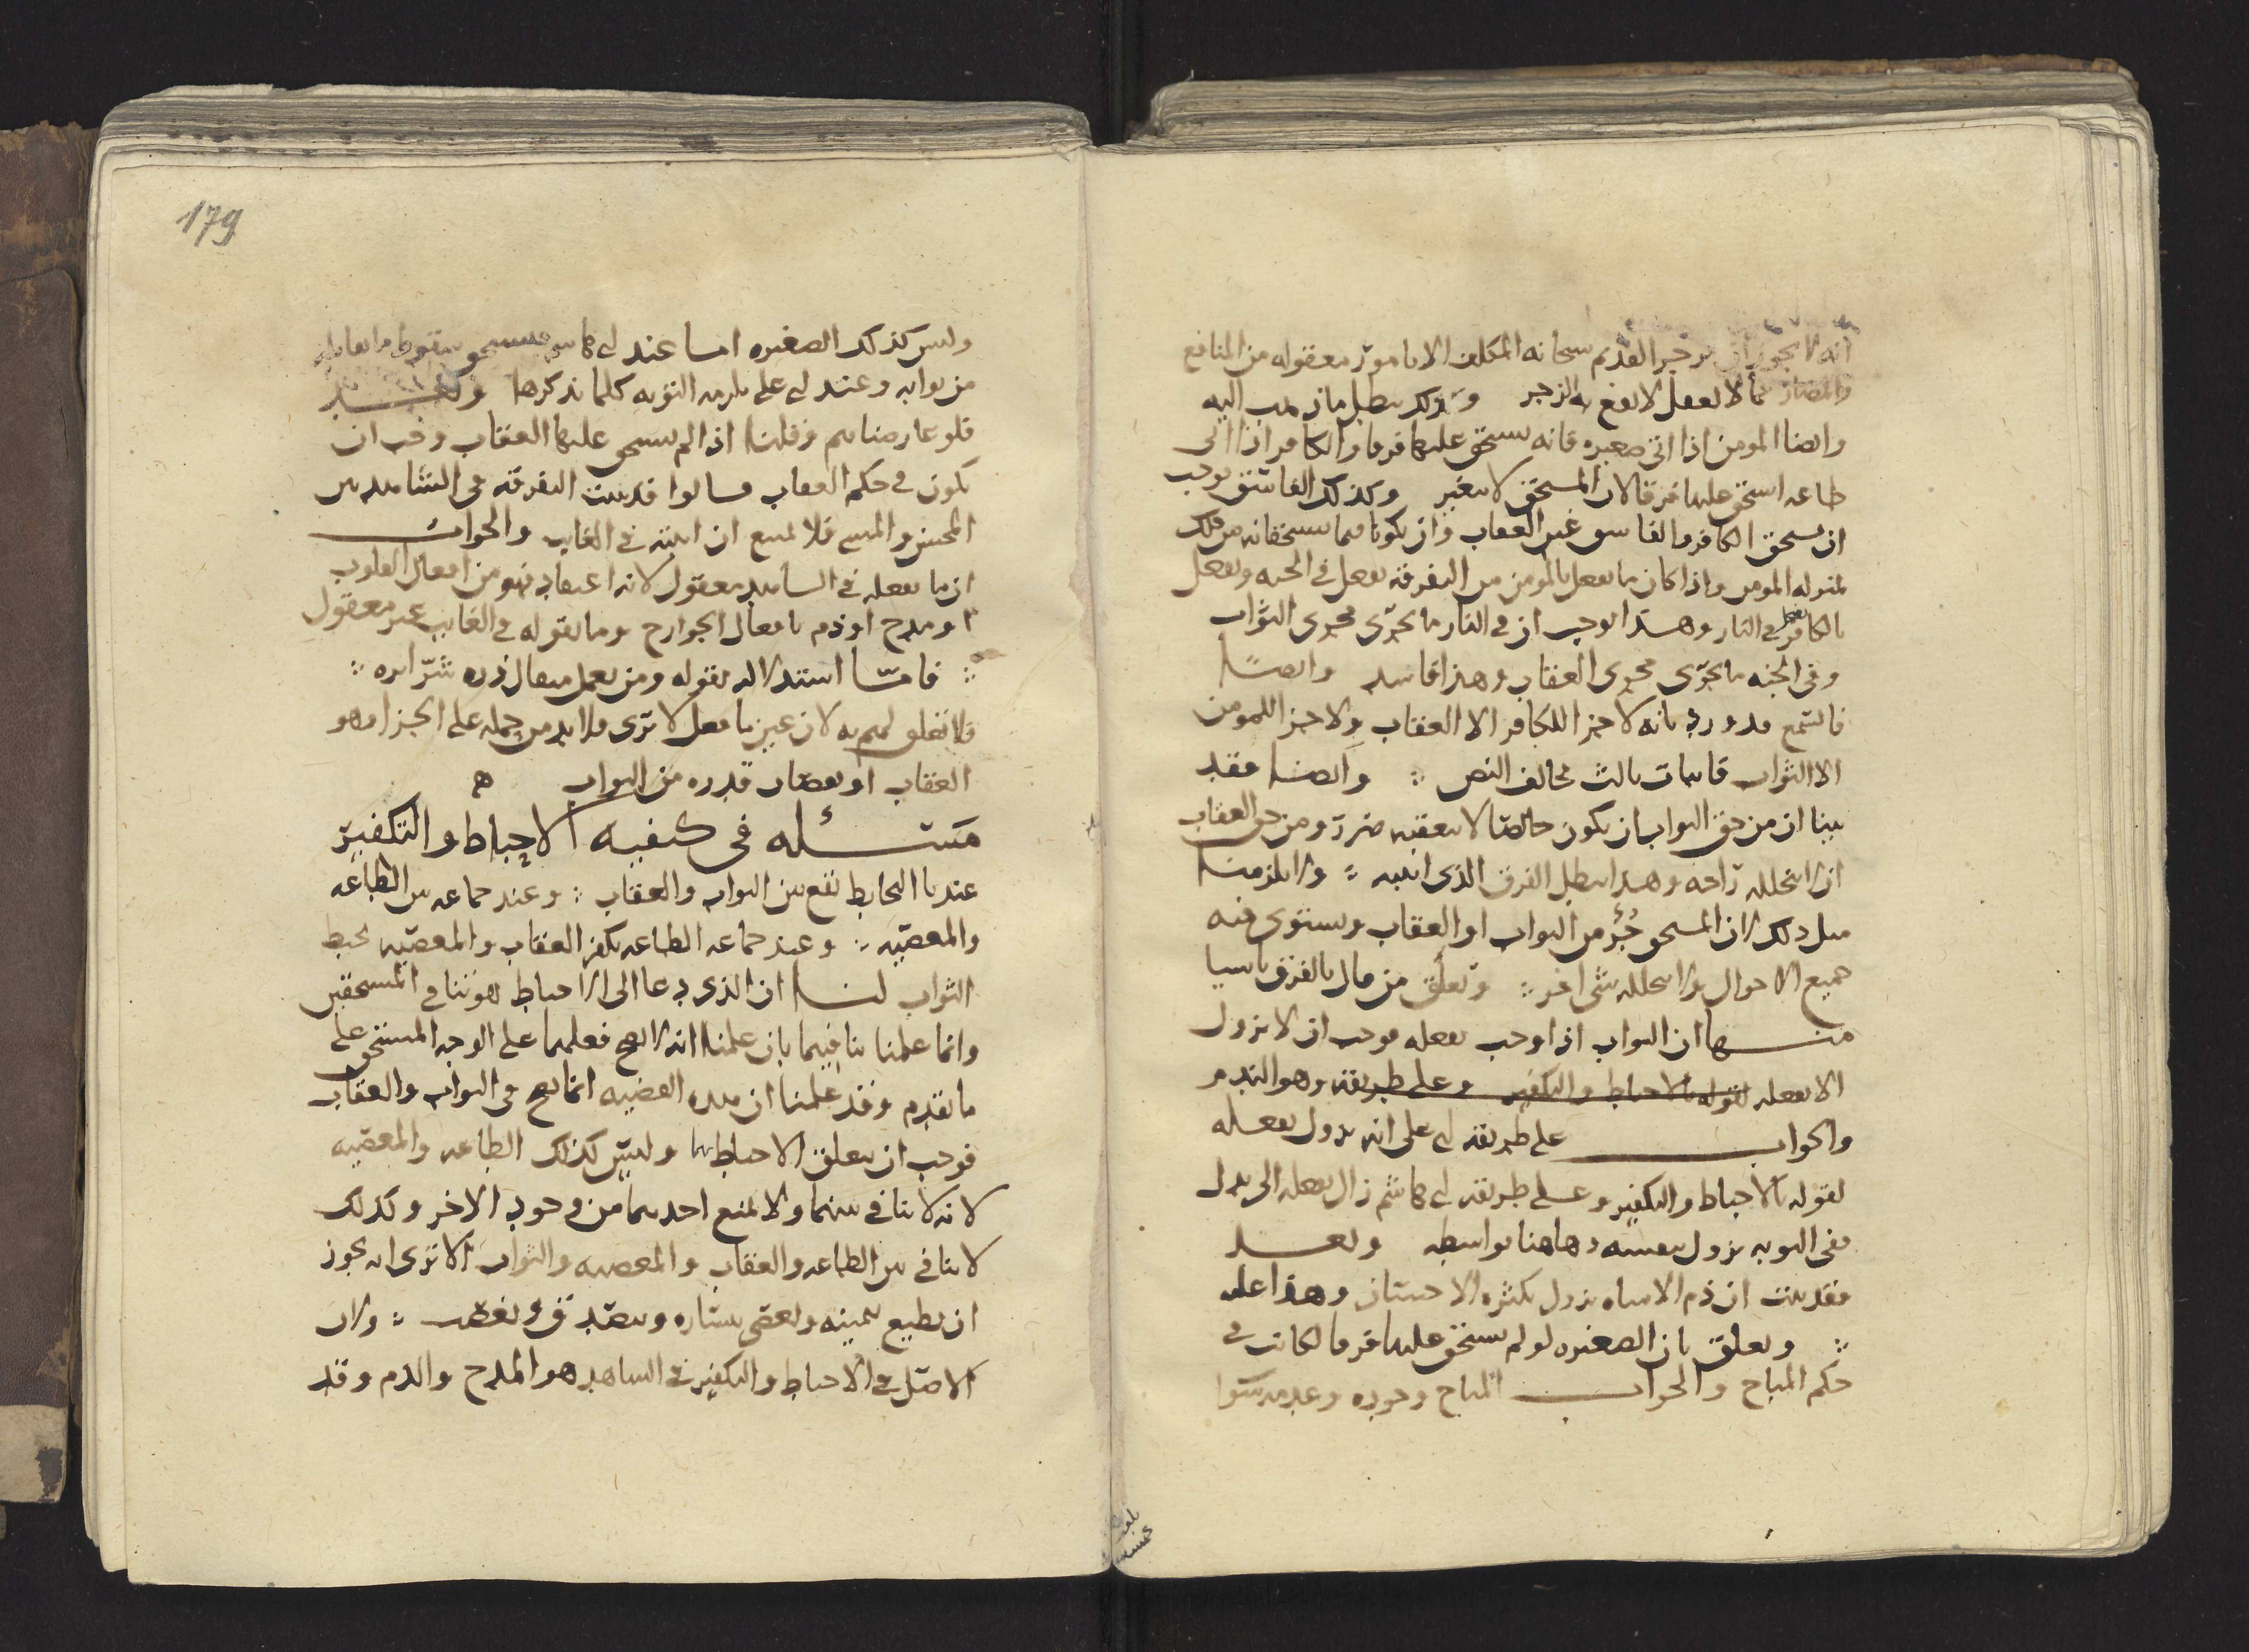 انه لا يجوز ان يزجر القديم سبحانه المكلف الا بامور معقوله من المنافع
والمضار مما لا يعقل لا يقع به الزجر وذلك يبطل ما ذهب اليه
وايضا المومن اذا اتى صغيره فانه يستحق عليها فرقا والكافر اذا اتى
طاعه استحق عليها فرقا لان المستحق لا يتغير وكذلك الفاسق يوجب
ان يستحق الكافر والفاسق غير العقاب وان يكونا فيما يستحقانه من ذلك
بمنزله المومن واذا كان ما يفعل بالمومن من التفرقه يفعل في الجنه ويفعل
بالكافر يفعل في النار وهذا يوجب ان في النار ما يجرى مجرى الثواب
وفي الجنه ما يجرى مجرى العقاب وهذا فاسد وايضا
فالسمع قد ورد بانه لا جزا للكافر الا العقاب ولا جزا للمومن
الا الثواب فاثبات ثالث مخالف النص وايضا فقد
بينا ان من حق الثواب ان يكون خالصا لا يتعقبه ضرر ومن حق العقاب
ان لا يتخلله راحه وهذا يبطل الفرق الذي اثبته ولا يلزمنا
مثل ذلك لان المستحق جزء من الثواب او العقاب ويستوى فيه
جميع الاحوال ولا يتخلله شى اخر وتعلق من قال بالفرق باشيا
منها ان الثواب اذا وجب بفعله فوجب ان لا يزول
الا بفعله لقوله بالاحباط والتكفير وعلى طريقته وهو الندم
والجواب على طريقه ابى على انه يزول بفعله
لقوله بالاحباط والتكفير وعلى طريقه ابى هاشم زال بفعله الى بدل
ففى التوبه يزول بنفسه وهاهنا بواسطه وبعد
فقد بينت ان ذم الاساه يزول بكثره الاحسان وهذا عله
وتعلق بان الصغيره لو لم يستحق عليها فرقا لكانت في
حكم المباح والجواب المباح وجوده وعدمه سوا
179
وليس كذلك الصغيره اما عند ابى هاشم فيستحق سقوط ما يقابله
من ثوابه وعند ابى على يلزمه التوبه كلما ذكرها وبعد
فلو عارضناهم وقلنا اذا لم يستحق عليها العقاب وجب ان
يكون في حكم العقاب قالوا قد بينت التفرقه في الشاهد بين
المحسن والمسى فلا يمتنع ان اثبته في الغايب والجواب
ان ما يفعله في الشاهد معقول لانه اعتقاد فهو من افعال القلوب
او مدح او ذم بافعال الجوارح وما يقوله في الغايب غير معقول
فاما استدلاله بقوله ومن يعمل مثقال ذره شرّا يره
فلا تعلق لهم به لان عين ما فعل لا يرى ولا بد من حمله على الجزا وهو
العقاب او نقصان قدره من الثواب ه
مسئله فى كيفيه الاحباط والتكفير
عندنا التحابط يقع بين الثواب والعقاب وعند جماعه بين الطاعه
والمعصيه وعند جماعه الطاعه تكفر العقاب والمعصيه تحبط
الثواب لنا ان الذى دعا الى الاحباط هو تنافى المستحقين
وانما علمنا تنافيهما بان علمنا انه لا يصح فعلهما على الوجه المستحق على
ما تقدم وقد علمنا ان هذه القضيه انما تصح في الثواب والعقاب
فوجب ان يتعلق الاحباط بها وليس كذلك الطاعه والمعصيه
لانه لا تنافى بينهما ولا يمنع احدهما من وجود الاخر وكذلك
لا تنافى بين الطاعه والعقاب والمعصيه والثواب الا ترى انه يجوز
ان يطيع بيمينه ويعصى بيساره ويتصدق ويغصب ولان
الاصل في الاحباط والتكفير في الشاهد هو المدح والذم وقد